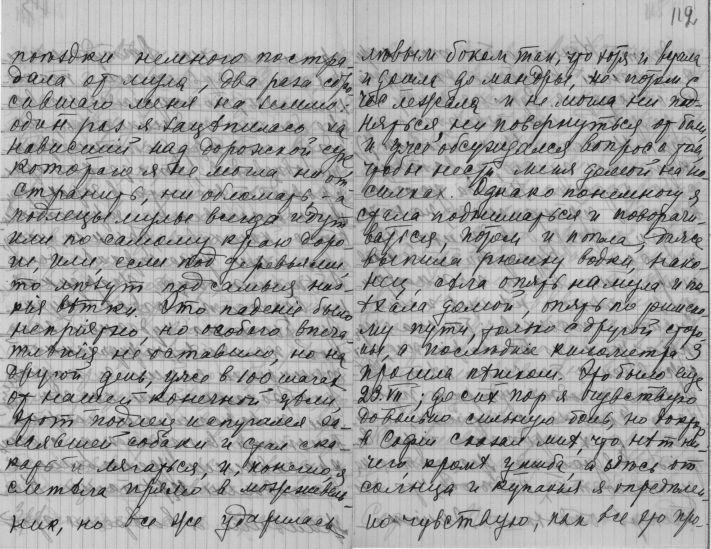 112
поѣздки немного постра-
дала от мула, два раза сбро-
сившаго меня на землю:
один раз я зацѣпилась за
нависший над дорожкой сук
котораго я не могла ни от-
странить, ни обломать, - а
подлецы мулы всегда идут
или по самому краю доро-
ги, или если под деревьями,
то лѣзут под самыя низ-
кія вѣтки. Это паденіе было
неприятно, но особого впеча-
тлѣнія не оставило, но на
другой день, уже в 100 шагах
от нашей конечной цѣли,
этот подлец испугался
лаявшей собаки и стал ска-
кать и лягаться, и, конечно, я
слетѣла прямо в можжевель-
ник, но все же ударилась
лѣвым боком так, что хотя и встала
и дошла до мандры, но потом с
час лежала и не могла ни под-
няться, ни повернуться от боли
и уже обсуждался вопрос о том,
чтобы нести меня домой на но-
силках. Однако понемногу я
стала подниматься и поворачи-
ваться, потом и поѣла, даже
выпила рюмку водки, нако-
нец сѣла опять на мула и по-
ѣхала домой, опять по римско-
му пути, только с другой сторо-
ны, а последніе километра 3
прошла пѣшком. Это было еще
23. VII; до сих пор я чувствую
довольно сильную боль, но доктор
в Софіи сказал мнѣ, что нѣт ни-
чего, кромѣ ушиба, и здѣсь от
солнца и купанья я опредѣлен-
но чувствую, как все это про-